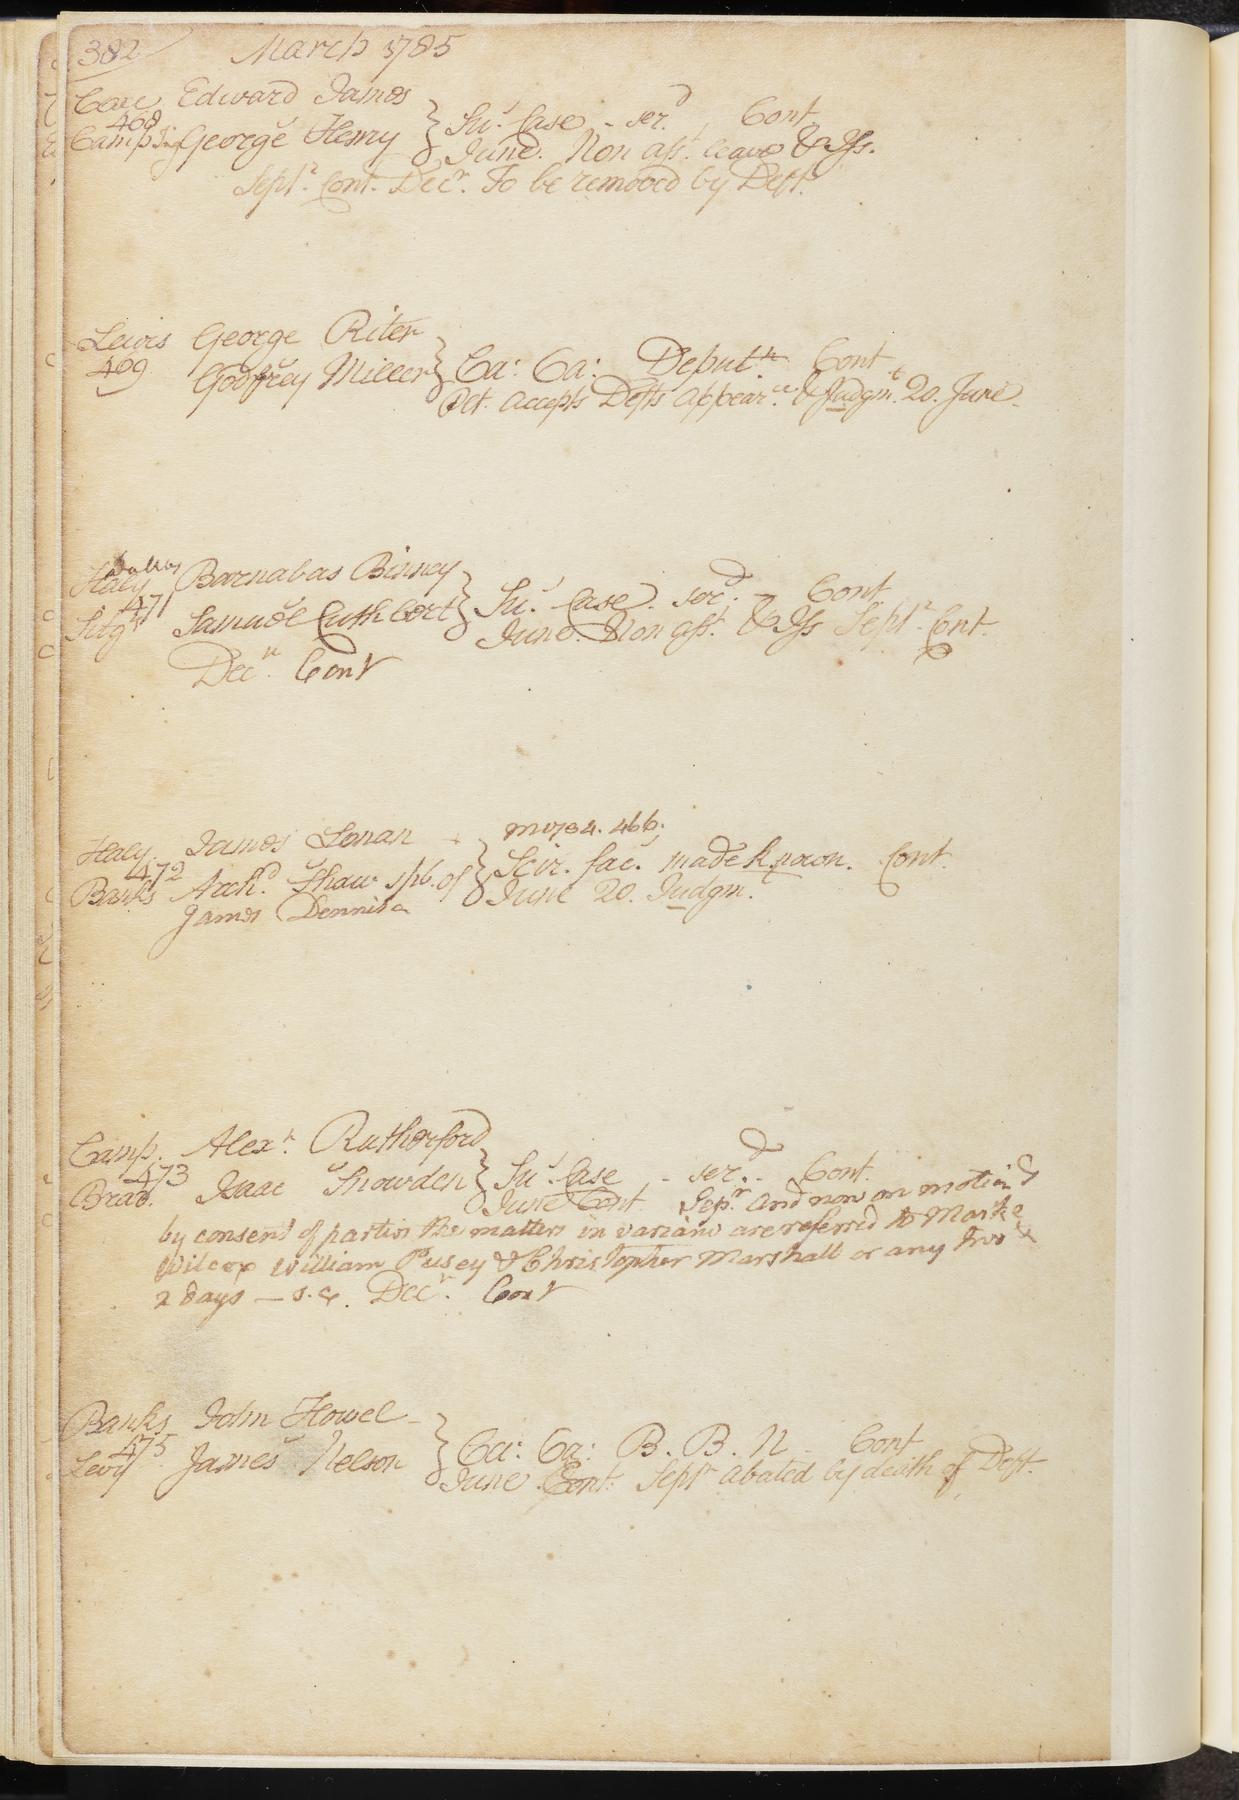 382 March 1785
Coxe Edward James
468 } Su.r Case - ser.d Cont
Camp George Henry June. Non ass.t leave & Iss.
Sept.r Cont. Dec.r To be removed by Deft.
Lewis George Riter
469 Godfrey Miller } Ca: Sa: Deput.n Cont
Plt. accepts Defts appear.ce & Judgm.t 20. June
Dallas
Haly Barnabas Binney
471 } Su.r Case. ser.d - Cont
Serg.t Samuel Cuthbert June. Non ass.t & Iss Sept.r Cont.
Dec.r Cont
m 1784. 466.
Haly. James Lonan
472 } Scir. fac. made known. Cont
Banks Arch.d Shaw spb. of June 20. Judgm.t
James Dennison
Camp. Alex.r Rutherford
473 } Su.r Case - ser.d - Cont
Brad. Isaac Snowden June Cont Sep.r And now on motion &
by consent of parties the matters in variance are referred to Mark
Wilcox William Pusey & Christopher Marshall or any two &
2 days — s.c. Dec.r Cont
Banks John Howel
475 } Ca: Sa: B. B. N - Cont
Levy James Nelson June Cont: Sept.r abated by death of Deft.